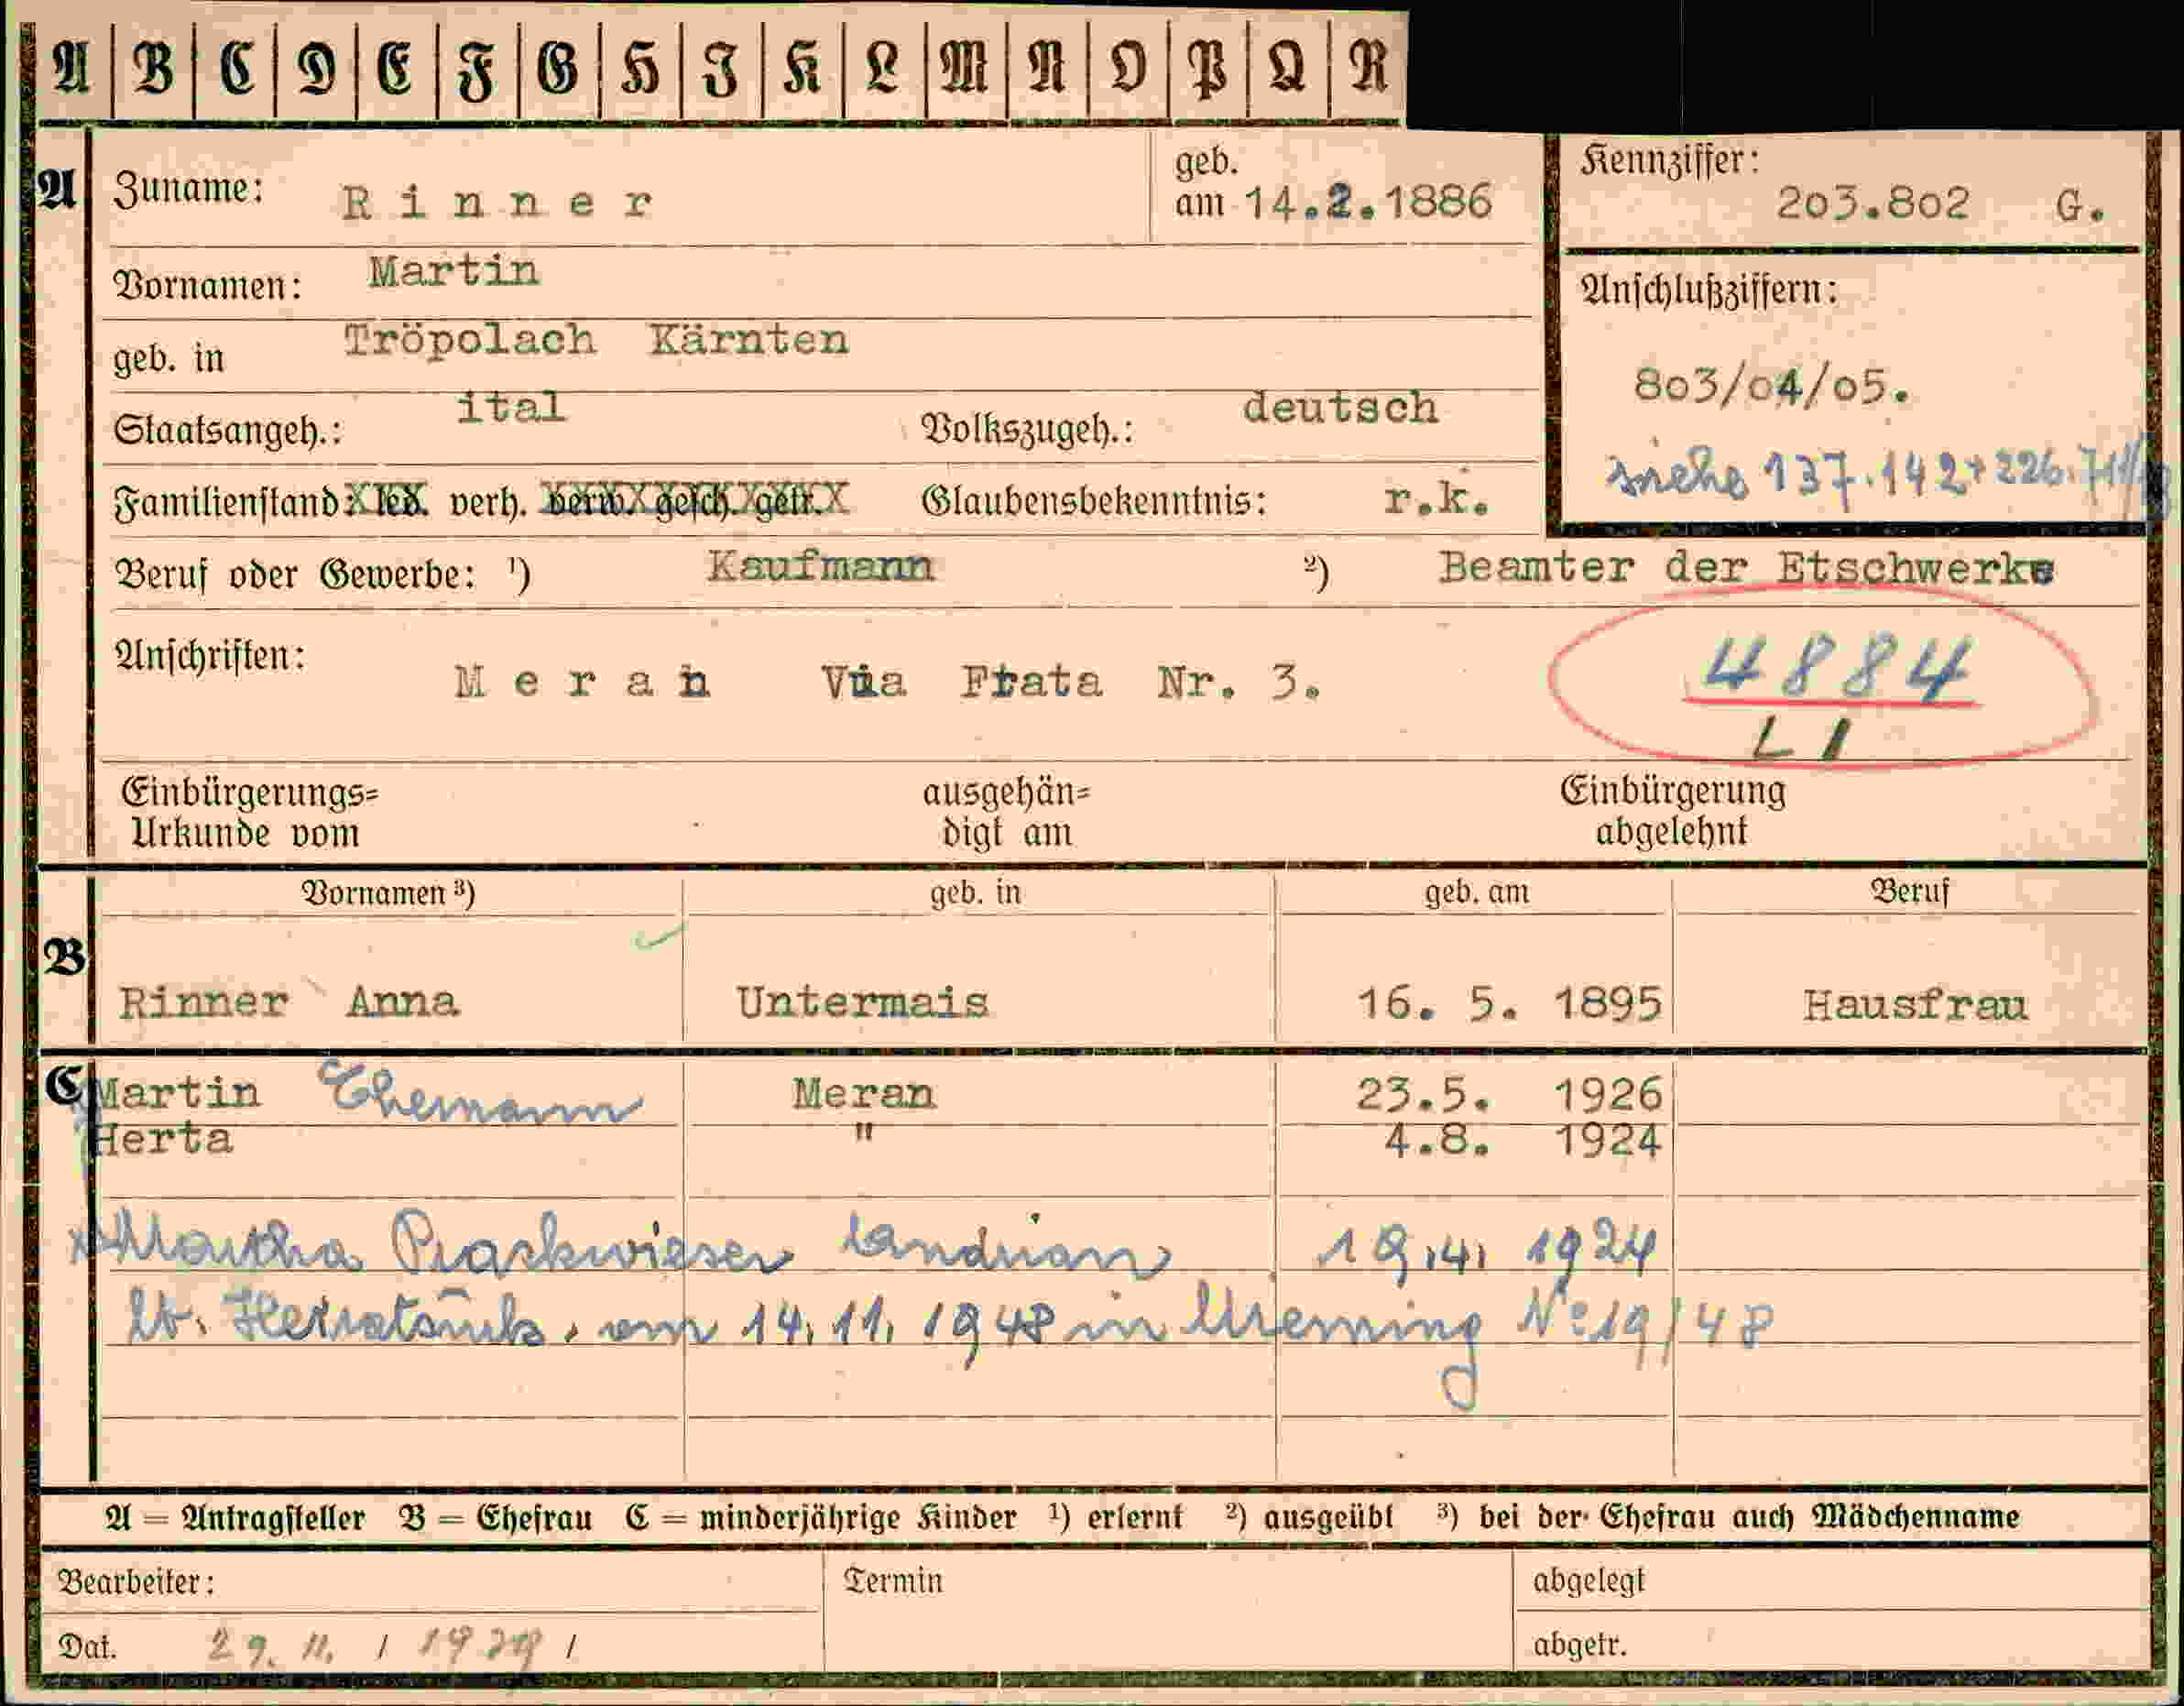 A B C D E F G H I K L M N O P Q R
A Zuname: Rinner geb. am 14.2.1886
Kennziffer: 203.802 G.
Vornamen: Martin
Anschlußziffern:
geb. in Tröpolach Kärnten
803/04/05.
Staatsangeh.: ital Volkszugeh.: deutsch
siehe 137.142+226.711/
Familienstand: led. verh. verw. gesch. getr. Glaubensbekenntnis: r.k.
Beruf oder Gewerbe: ¹) Kaufmann ²) Beamter der Etschwerke
Anschriften: Meran Via Prata Nr. 3.
4884
L I
Einbürgerungs= Urkunde vom ausgehän= digt am Einbürgerung abgelehnt
Vornamen ³) geb. in geb. am Beruf
B Rinner Anna Untermais 16. 5. 1895 Hausfrau
C Martin Ehemann Meran 23.5. 1926
Herta " 4.8. 1924
Martha 19.4. 1924
lt. vom 14.11.1948 in No 19/48
A = Antragsteller B = Ehefrau C = minderjährige Kinder ¹) erlernt ²) ausgeübt ³) bei der Ehefrau auch Mädchenname
Bearbeiter: Termin abgelegt
Dat. 29. 11. / / abgetr.